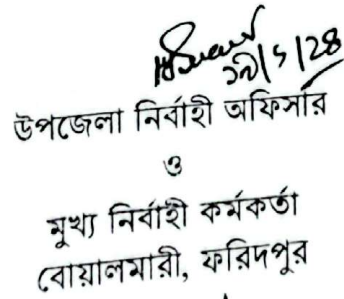 উপজেলা নির্বাহী অফিসার
ও
মুখ্য নির্বাহী কর্মকর্তা
বোয়ালমারী, ফরিদপুর